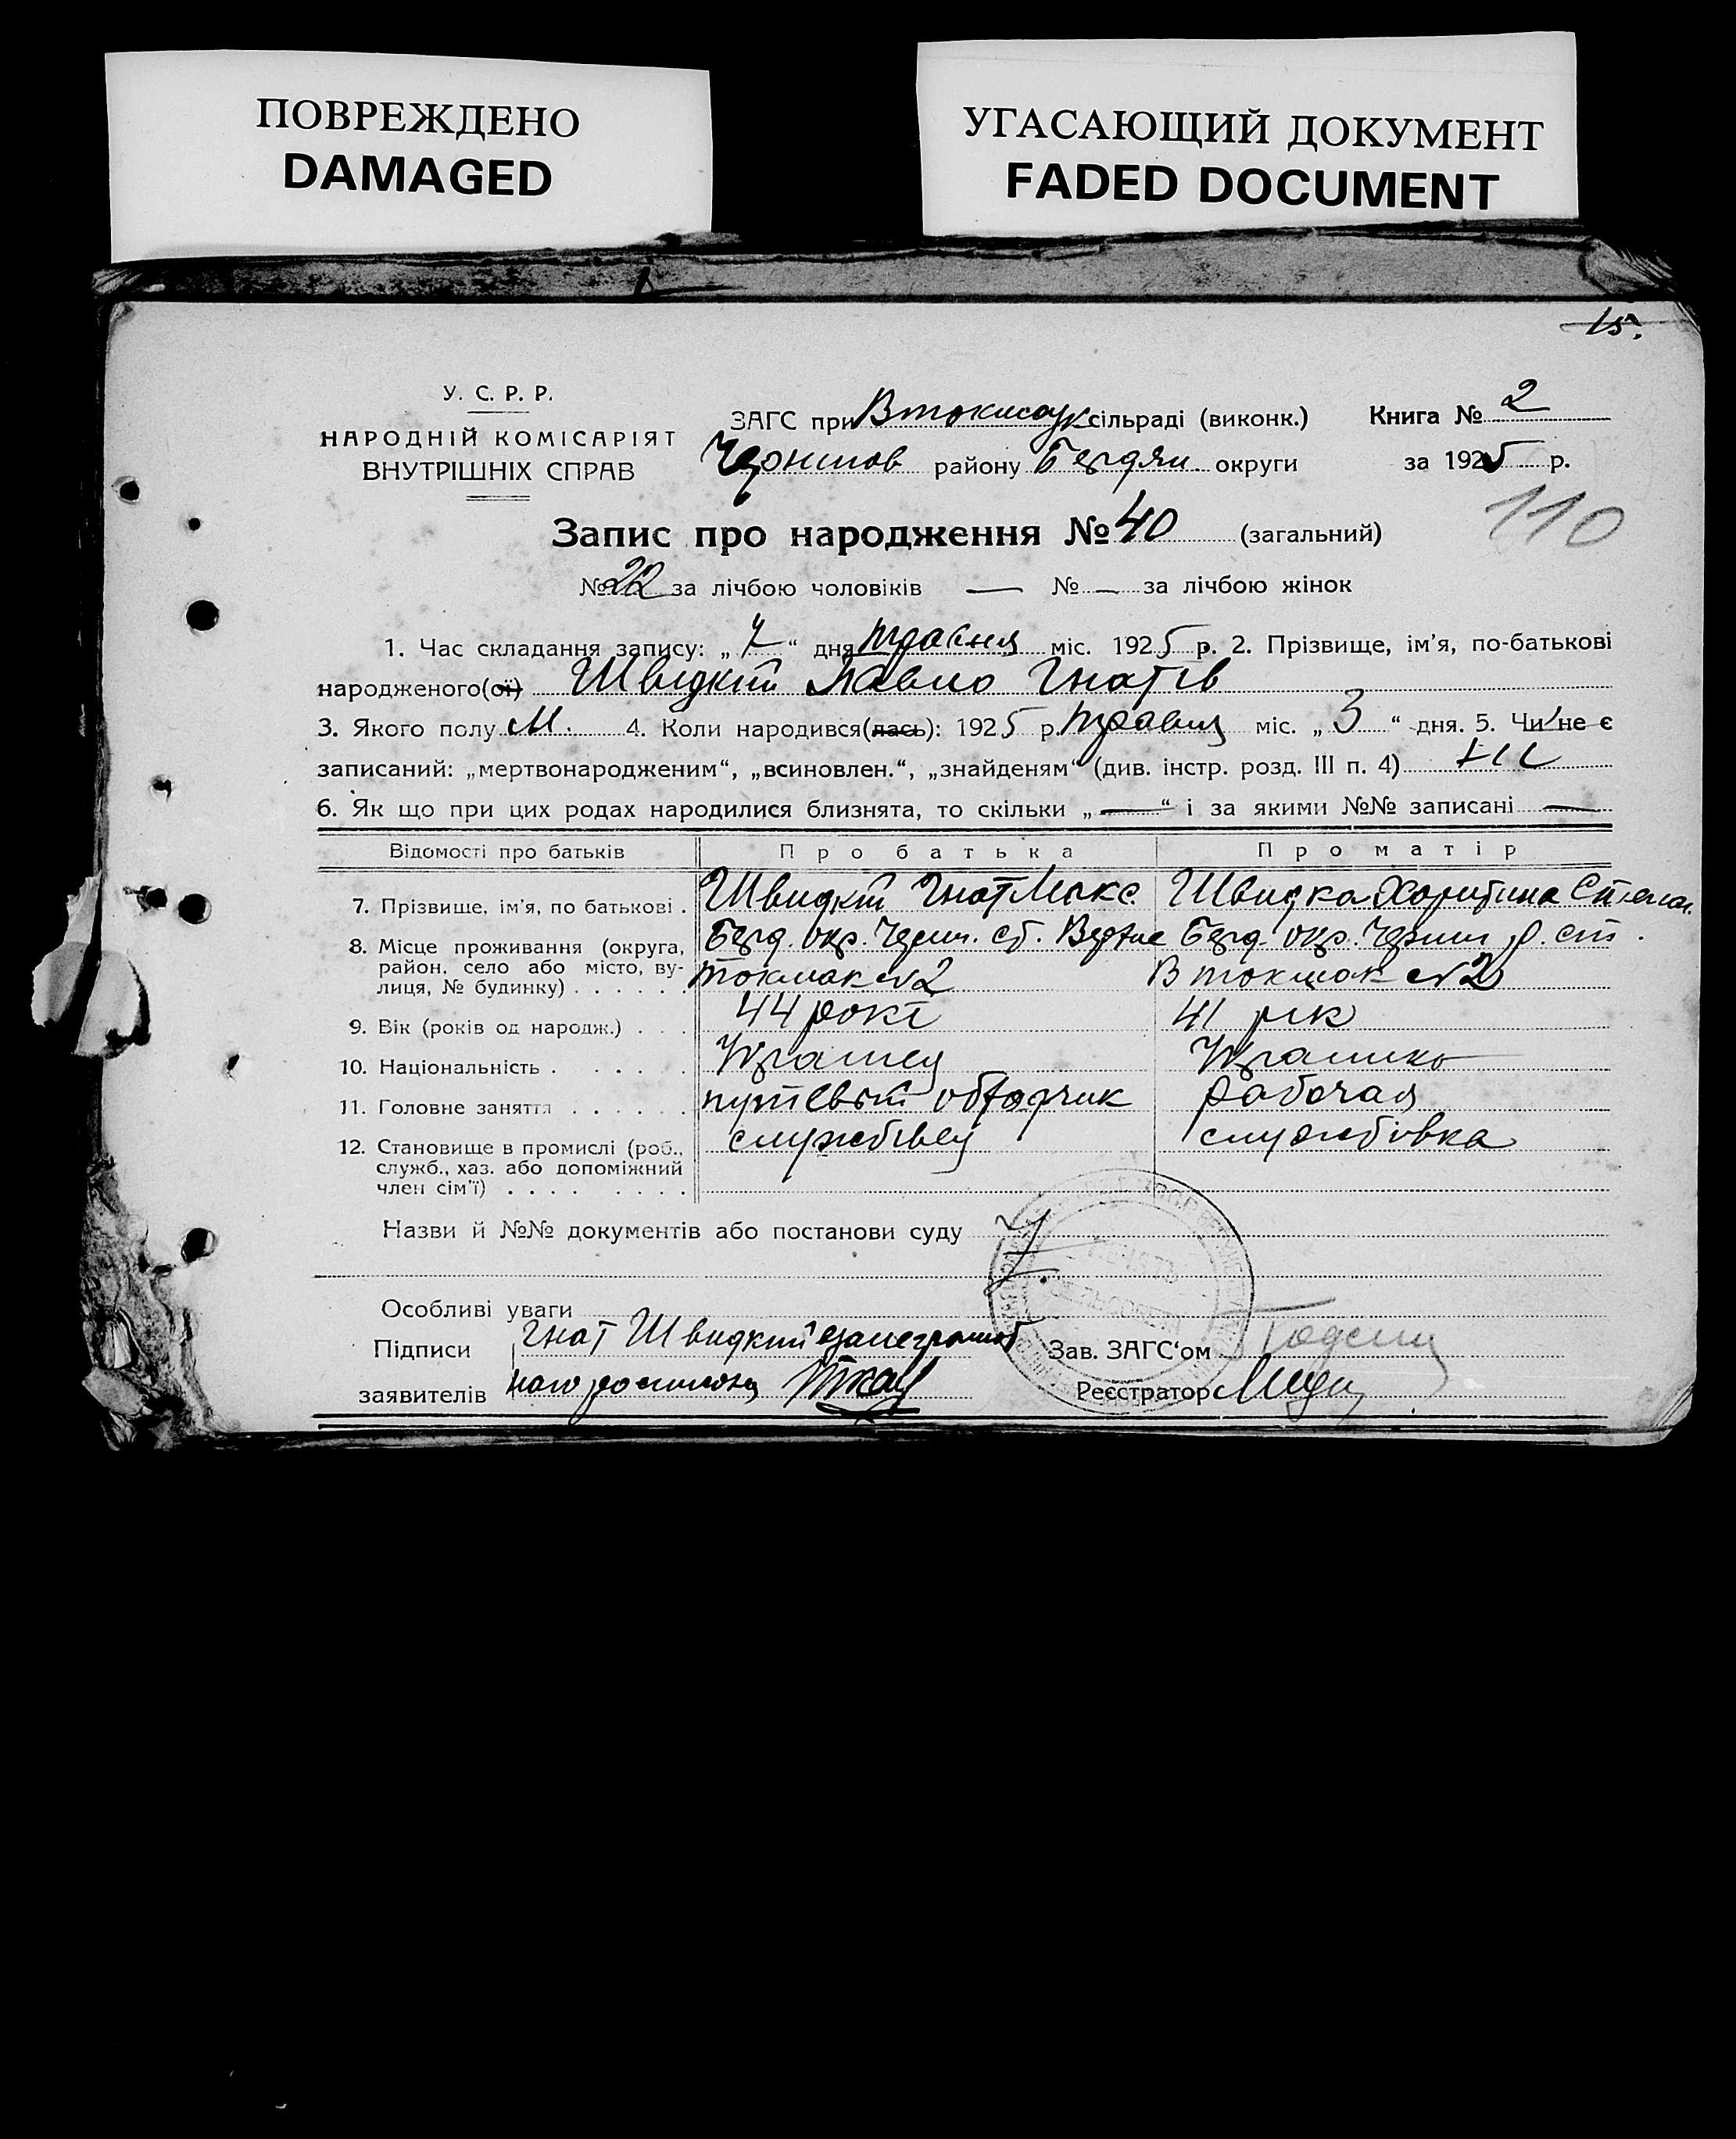 ПОВРЕЖДЕНО
DAMAGED
УГАСАЮЩИЙ ДОКУМЕНТ
FADED DOCUMENT
15.
У. С. Р. Р.
НАРОДНІЙ КОМІСАРІЯТ
ВНУТРІШНІХ СПРАВ
ЗАГС при Втокмац сільраді (виконк.) Книга № 2
Черниш району Бердян. округи за 1925 р.
110
Запис про народження № 40 (загальний)
№ 22 за лічбою чоловіків — № — за лічбою жінок
1. Час складання запису: „ 7 “ дня травня міс. 1925 р. 2. Прізвище, ім’я, по-батькові
народженого(ої) Швидкій Павло Гнатів
3. Якого полу М. 4. Коли народився(лась): 1925 р. травня міс. „ 3 “ дня. 5. Чи не є
записаний: „мертвонародженим“, „всиновлен.“, „знайденям“ (див. інстр. розд. III п. 4)
6. Як що при цих родах народилися близнята, то скільки „ — “ і за якими №№ записані —
Відомості про батьків Про батька Про матір
7. Прізвище, ім’я, по батькові . Швидкій Гнат Макс. Швидка Харитина Степан.
8. Місце проживання (округа, район, село або місто, вулиця, № будинку) . . . . . . Берд. окр. Черниг. Берд. окр. Черниг р. ст.
Токмак № 2 В токмак № 2
9. Вік (років од народж.) . . . 44 рокі 41 рік
10. Національність . . . . . Украінец Украинка
11. Головне заняття . . . . . . путевый обходчик рабочая
12. Становище в промислі (роб., служб., хаз. або допоміжний член сім’ї) . . . . . . . . службівец службівка
Назви й №№ документів або постанови суду
Особливі уваги
Підписи Гнат Швидкий
Зав. ЗАГС‘ом
заявителів
Реєстратор